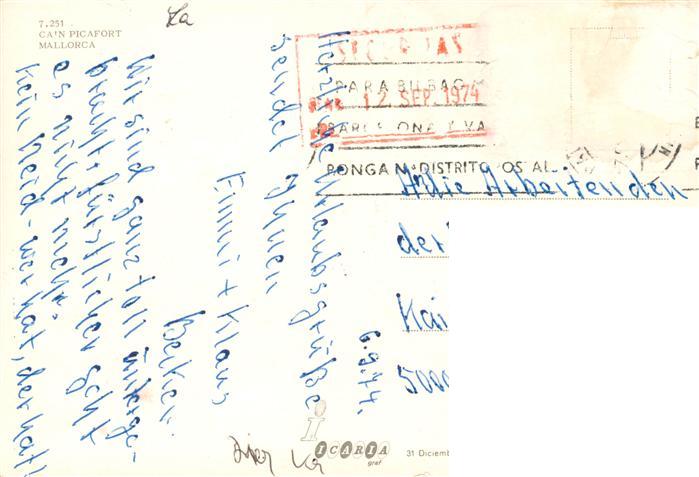 7.251
CA'N PICAFORT
MALLORCA
La
12. SEP. 1974
PARA BILBAO
BARCELONA Y VA
PONGA Nº DISTRITO POSTAL
6.9.74.
Herzliche Urlaubsgrüße
sendet Ihnen
Emmi + Klaus
Becker.
Wir sind ganz toll unterge-
bracht, fürstlicher geht
es nicht mehr.
Kein Neid - wer hat, der hat!
An die Arbeitenden
der
Kai
5000
iCARIA
graf
31 Diciemb